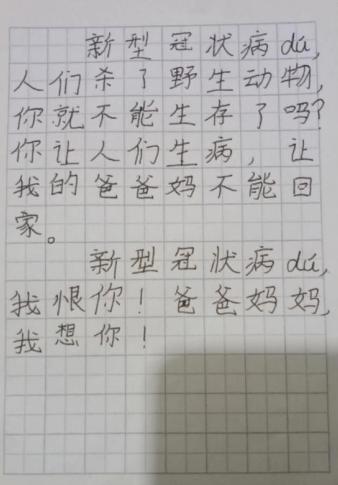 新型冠状病dú,
人们杀了野生动物,
你就不能生存了吗?
你让人们生病,让
我的爸爸妈不能回
家。
新型冠状病dú,
我恨你!爸爸妈妈,
我想你!